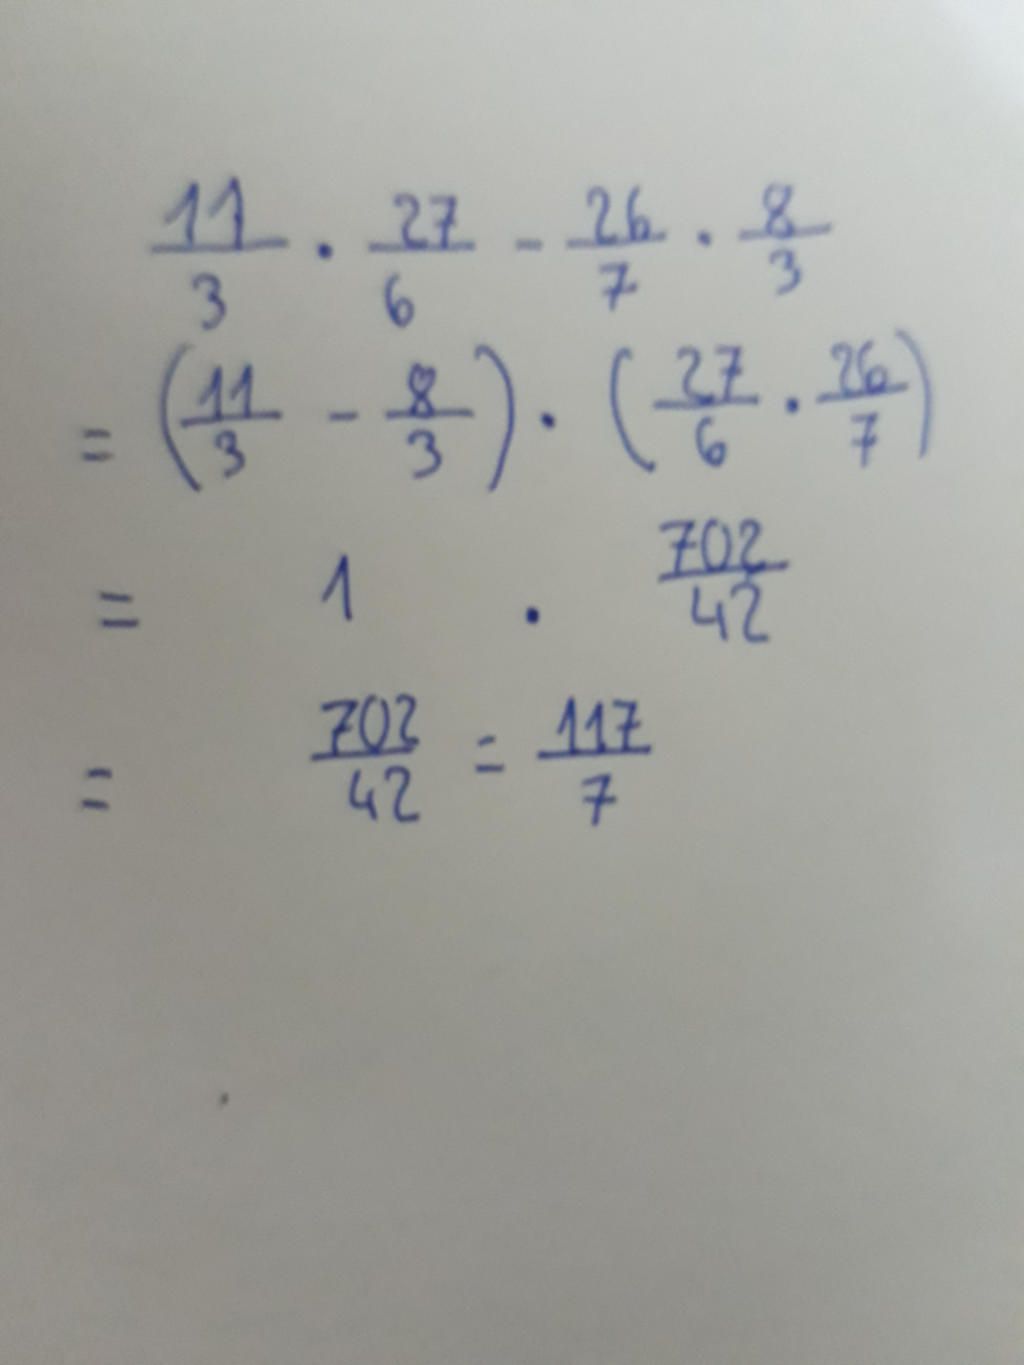 11/3 · 27/6 - 26/7 · 8/3
= (11/3 - 8/3) · (27/6 · 26/7)
= 1 · 702/42
= 702/42 = 117/7